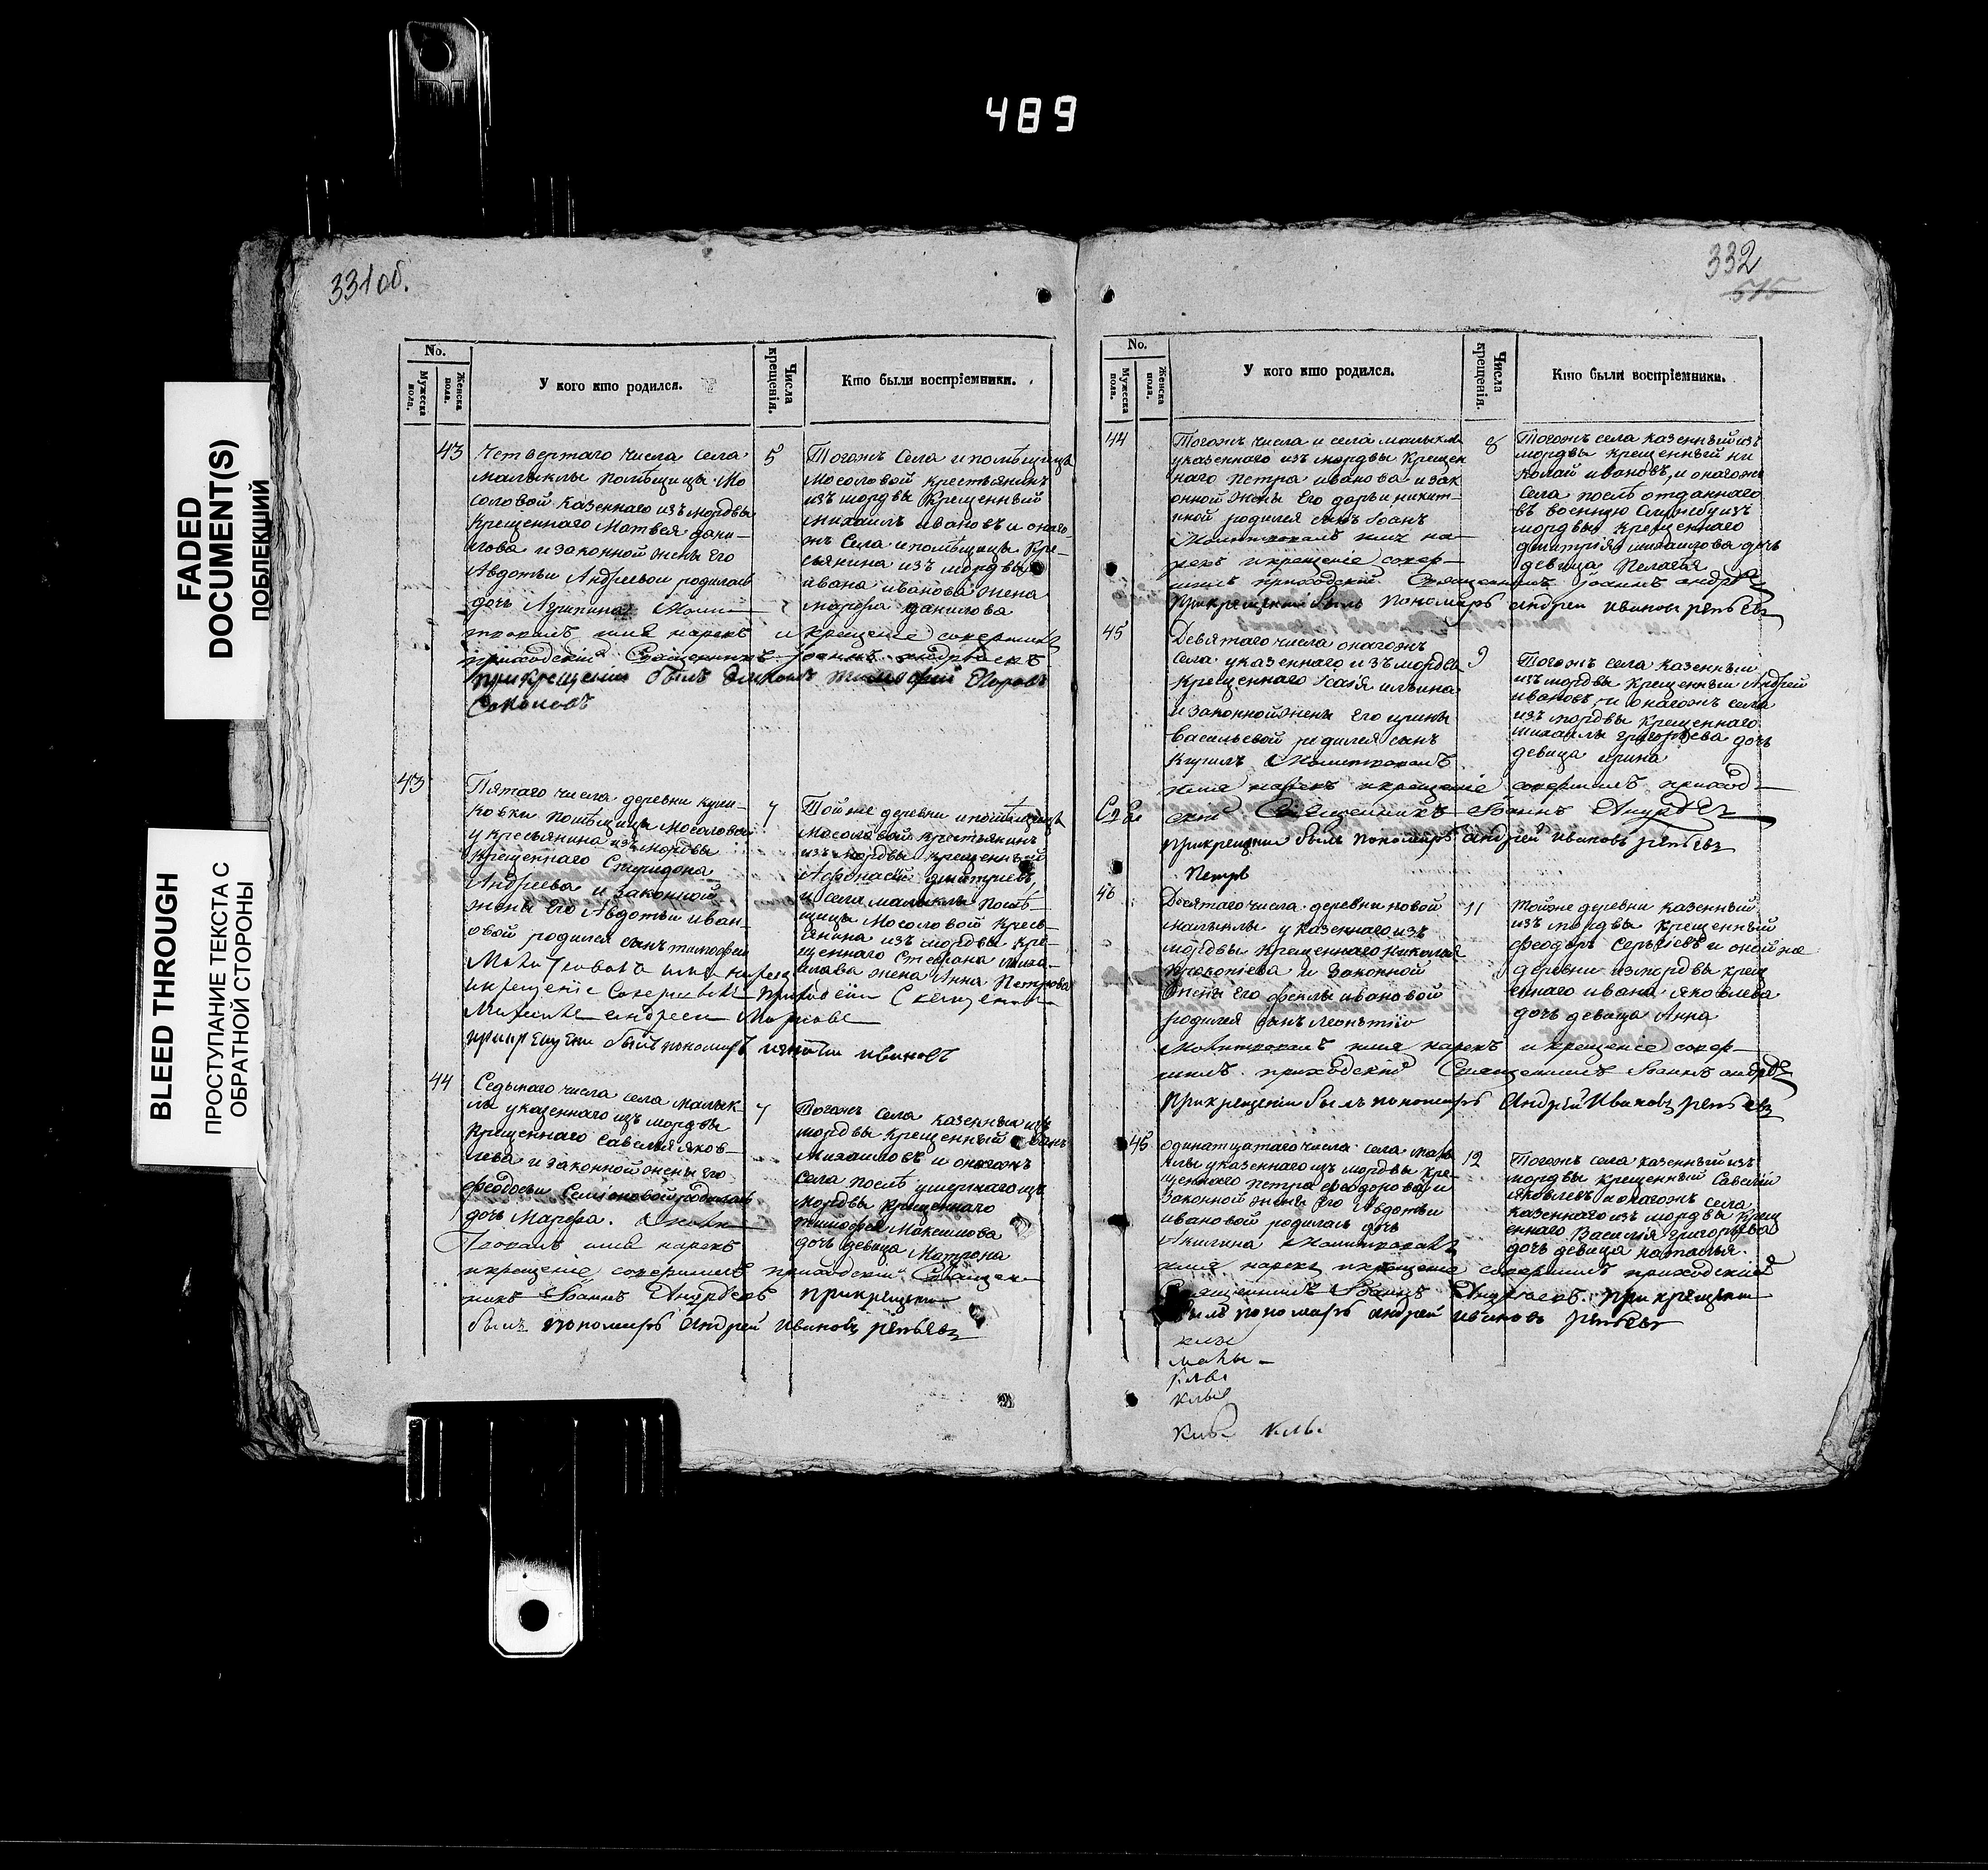 489
FADED
DOCUMENT(S)
ПОБЛЕКШИЙ
BLEED THROUGH
ПРОСТУПАНИЕ ТЕКСТА С
ОБРАТНОЙ СТОРОНЫ
331 об.
No.
Мужеска пола.
Женска пола.
У кого кто родился.
Числа крещенія.
Кто были воспріемники.
43
Четвертаго числа села
малыклы помѣщицы Мо
соловой казеннаго изъ мордвы
крещеннаго Матвея дани-
лова и законной жены его
Авдотьи Андреевои родилась
дочь Агрипина Моли-
твовалъ имя нарекъ и крещение совершилъ
приходскій Священникъ Іоаннъ Андрѣевъ
при крещении былъ дьяконъ тимофей Егоровъ
Соколовъ
5
Тогожъ Села и помѣщицы
Мосоловой крестьянинъ
изъ мордвы крещенный
михаилъ ивановъ и онаго-
жъ Села и помѣщицы кре-
сьянина изъ мордвы
ивана иванова жена
марфа данилова
43
Пятаго числа деревни кули-
ковки помѣщицы Мосоловой
у кресьянина изъ мордвы
крещеннаго Спиридона
Андреева и законной
жены Его Авдотьи иван-
овой родился сынъ тимофей
Молитвовалъ имя нарекъ
и крещение Совершилъ приходскии Священникъ
Михаиле андреев
при крещени былъ пономарь игнатии ивановъ
7
Той же деревни и помѣщицы
Мосоловой крестьянинъ
изъ мордвы крещенный
Афонасій дмитриевъ,
и села малыклы помѣ-
щицы Мосоловой кресь-
янина изъ мордвы кре-
щеннаго Стефана миха-
илава жена Анна Петрова
44
Седьмаго числа села малык-
лы у казеннаго изъ мордвы
крещеннаго Савелья яков-
лева и законной жены его
феодосьи Семіоновой родилась
дочь Марфа. Моли
твовалъ имя нарекъ
и крещение совершилъ приходскій Священ-
никъ Іоаннъ Андрѣевъ при крещени
былъ пономарь Андрей ивановъ репьевъ
7
Тогожъ села казенный изъ
мордвы крещенный иванъ
михаиловъ и онагожъ
села послѣ умершаго изъ
мордвы крещеннаго
тимофея Максимова
дочь девица Матрона
332
515
No.
Мужеска пола.
Женска пола.
У кого кто родился.
Числа крещенія.
Кто были воспріемники.
44
Тогожъ числа и села малыклы
у казеннаго изъ мордвы крещен
наго петра иванова и зак
онной жены Его дарьи никит-
иной родился сынъ Іоанъ
Молитвовалъ имя на-
рекъ и крещеніе совер-
шилъ приходскій Священникъ Іоаннъ Андрѣевъ
при крещении былъ пономарь андрей ивановъ репьевъ
8
Тогожъ села казенный изъ
мордвы крещенный ни
колай ивановъ, и онагожъ
села послѣ отданнаго
въ военную Службу изъ
мордвы крещеннаго
дмитрия михаилова дочь
девица Пелагея
45
Девятаго числа онагожъ
села у казеннаго изъ мордвы
крещеннаго Исаія ильина
и законной жены его ирины
Васильевой родился сынъ
кирилъ Молитвовалъ
имя нарекъ и крещеніе совершилъ приход-
скій Священникъ Іоаннъ Андрѣевъ
при крещении былъ пономарь андрей ивановъ репьевъ
Петръ
9
Тогожъ села казенный
изъ мордвы крещенный Андрей
ивановъ, и онагожъ села
изъ мордвы крещеннаго
михаилы григорьева дочь
девица ирина
46
Десятаго числа деревни новой
малыклы у казеннаго изъ
мордвы крещеннаго николая
прокопіева и законной
жены Его феклы ивановой
родился сынъ леонтій
Молитвовалъ имя нарекъ и крещеніе совер-
шилъ приходскій Священникъ Іоаннъ андрѣевъ
при крещении былъ пономарь Андрей Ивановъ репьевъ
11
той же деревни казенный
изъ мордвы крещенный
феодоръ Сергіевъ и оной же
деревни из мордвы крещ
еннаго ивана яковлева
дочь девица Анна
45
одинатцатаго числа села малы
клы у казеннаго изъ мордвы кре-
щеннаго петра феодорова и
законной жены Его Авдотьи
ивановой родилась дочь
Акилина Молитвовалъ
имя нарекъ и крещеніе совершилъ приходскій
Священникъ Іоаннъ Андрѣевъ. при крещении
былъ пономарь андрей ивановъ репьевъ
12
Тогожъ села казенный изъ
мордвы крещенный Савелій
яковлевъ, и онагожъ села
казеннаго изъ мордвы крещ
еннаго Василія григорьева
дочь девица наталья.
клы
малы-
клы